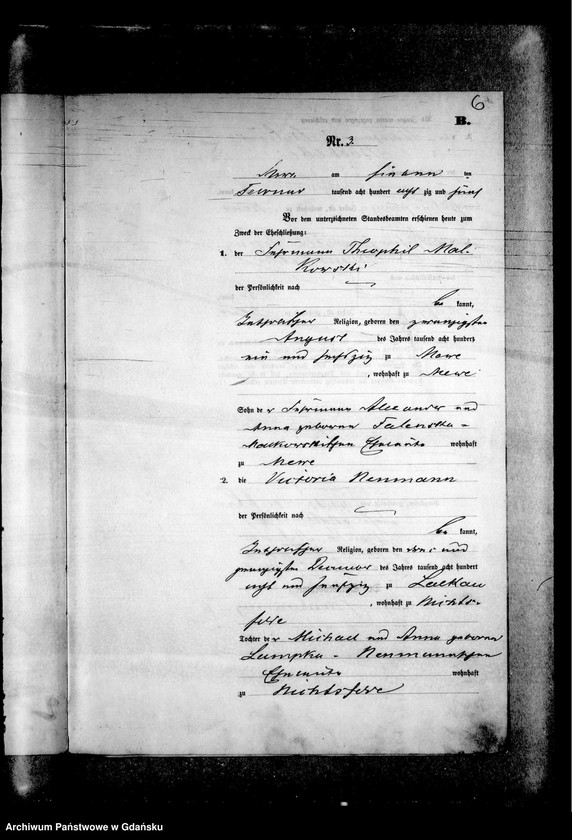 6
B.
Nr. 3
Mewe am sieben ten
Februar tausend acht hundert acht zig und fünf
Vor dem unterzeichneten Standesbeamten erschienen heute zum
Zweck der Eheschließung:
1. der Theophil Mal-
kowski
der Persönlichkeit nach
be kannt,
katholischer Religion, geboren den zwanzigsten
August des Jahres tausend acht hundert
ein und sechszig zu Mewe
, wohnhaft zu Mewe
Sohn der Alexander und
Anna geborene
Eheleute wohnhaft
zu Mewe
2. die Victoria Neumann
der Persönlichkeit nach
be kannt,
katholischer Religion, geboren den und
zwanzigsten des Jahres tausend acht hundert
acht und fünfzig zu
, wohnhaft zu Nichts-
felde
Tochter der Michael und Anna geborene
Lampka - Neumannschen
Eheleute wohnhaft
zu Nichtsfelde
Archiwum Państwowe w Gdańsku